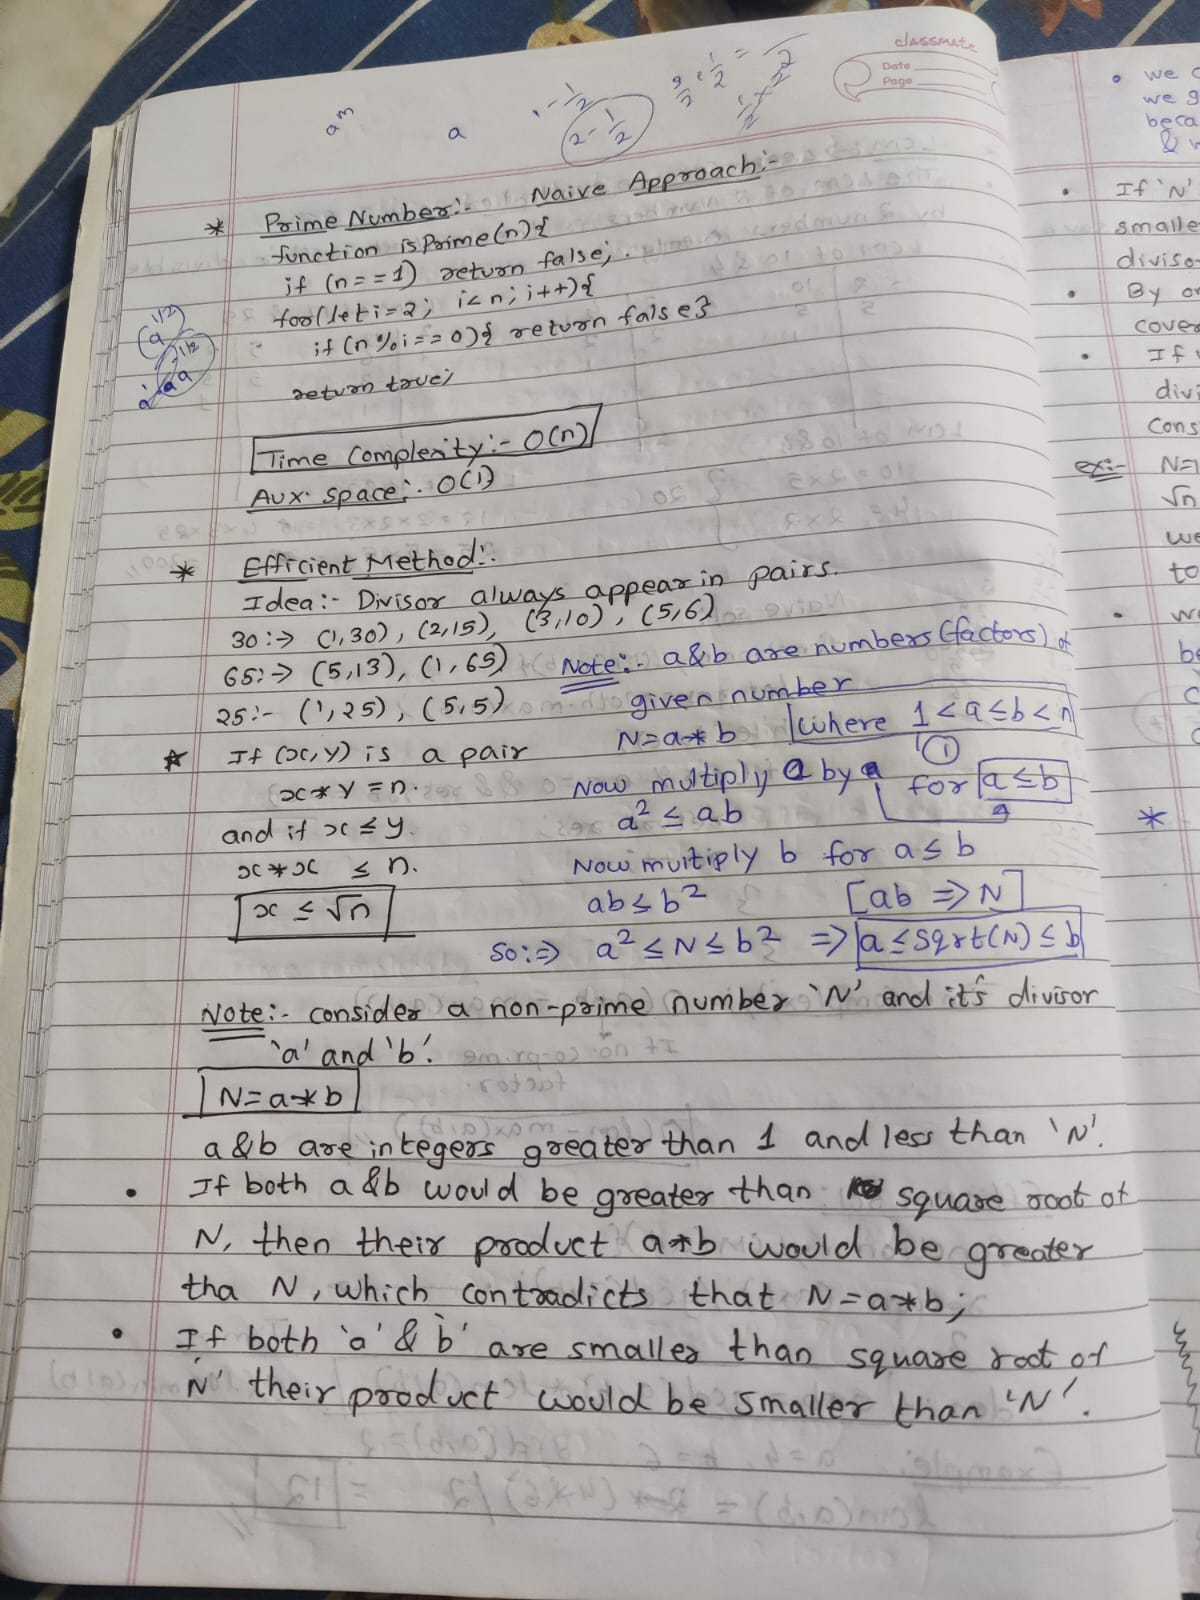 classmate
Date
Page
a^m
a
2 - 1/2
* Prime Number:- Naive Approach:-
function isPrime(n){
if (n==1) return false;
for(let i=2; i<n; i++){
if (n%i==0){ return false}
return true;
Time Complexity:- O(n)
Aux. Space:. O(1)
* Efficient Method:.
Idea:- Divisor always appear in pairs.
30:-> (1,30), (2,15), (3,10), (5,6)
65:-> (5,13), (1,65)
25:- (1,25), (5,5)
* If (x,y) is a pair
x*y=n.
and if x≤y.
x*x ≤ n.
x ≤ √n
Note:- a&b are numbers (factors) of
given number
N=a*b where 1<a≤b<n
①
Now multiply a by a for a≤b
a² ≤ ab
Now multiply b for a≤b
ab≤b² [ab => N]
So:=> a² ≤ N ≤ b² => a≤sqrt(N)≤b
Note:- consider a non-prime number 'N' and it's divisor
'a' and 'b'.
N=a*b
a&b are integers greater than 1 and less than 'N'.
• If both a&b would be greater than square root of
N, then their product a*b would be greater
tha N, which contradicts that N=a*b;
• If both 'a' & b' are smaller than square root of
N' their product would be smaller than 'N'.
• we
we
• If 'N'
smalle
diviso
• By
cover
• If
divi
cons
ex:- N=
√n
we
to
•
*